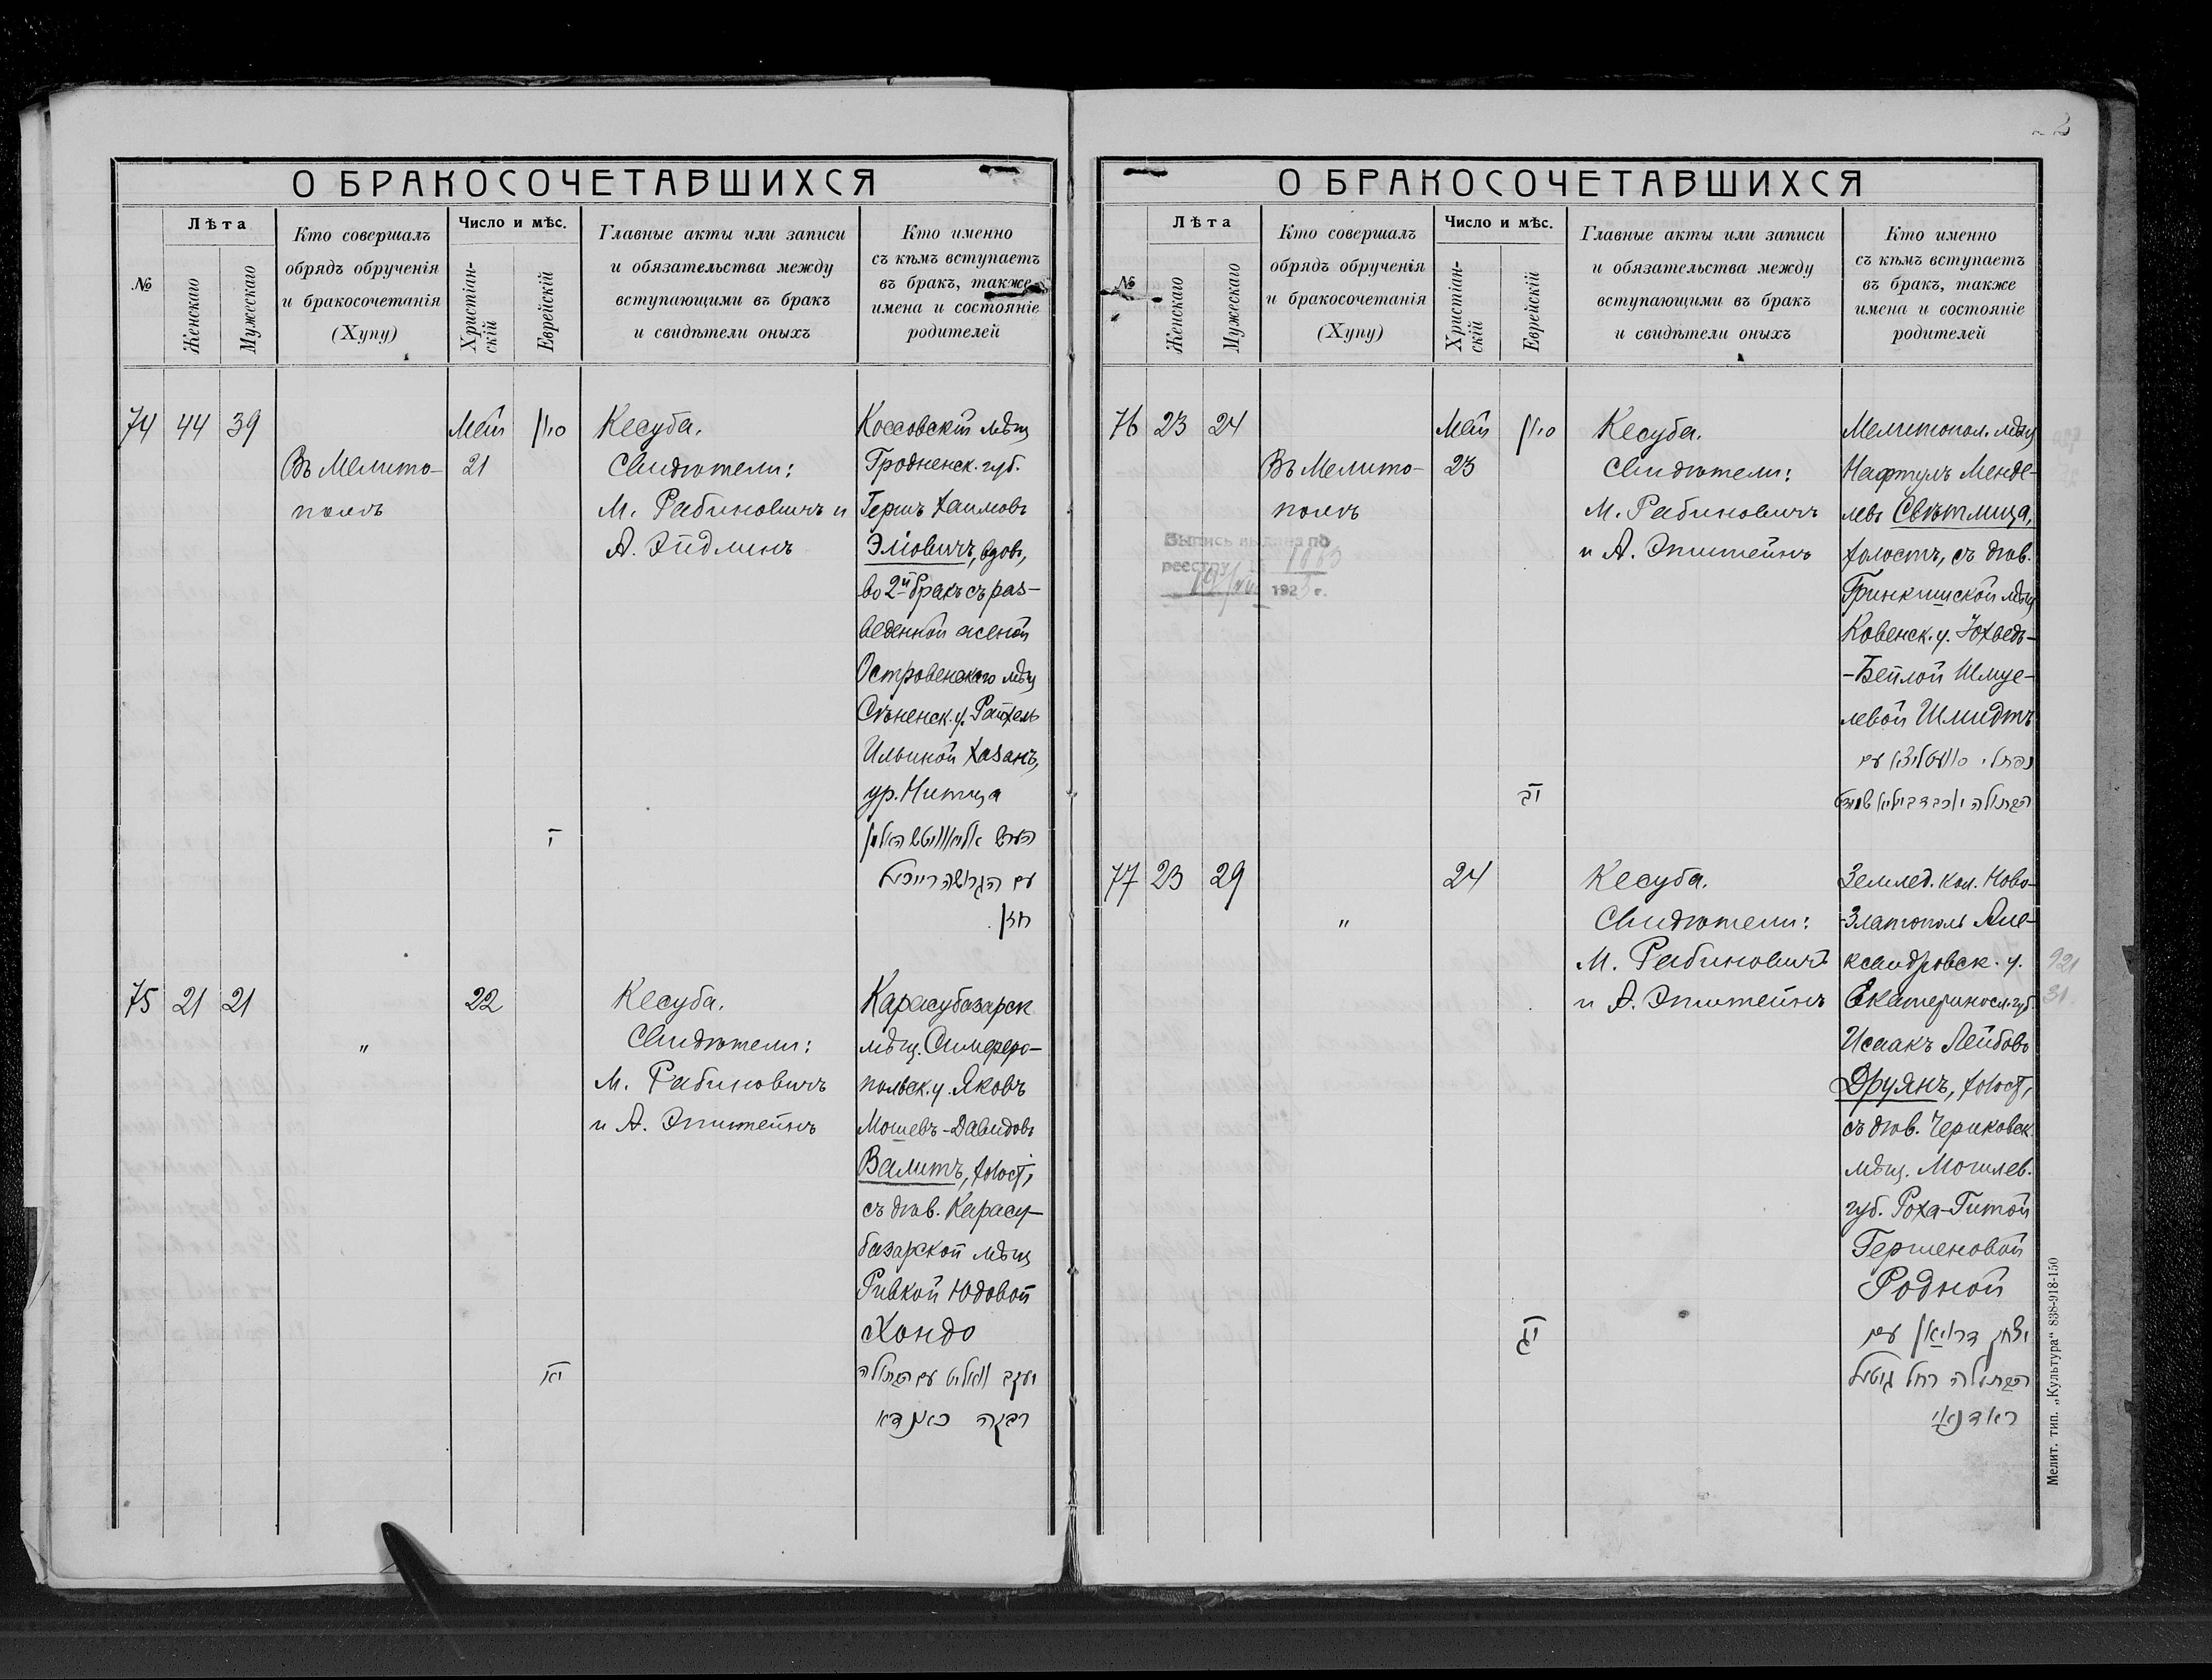 О БРАКОСОЧЕТАВШИХСЯ
№
Лѣта
Женскаго
Мужескаго
Кто совершалъ
обрядъ обрученія
и бракосочетанія
(Хупу)
Число и мѣс.
Христіан-
скій
Еврейскій
Главные акты или записи
и обязательства между
вступающими въ бракъ
и свидѣтели оныхъ
Кто именно
съ кѣмъ вступаетъ
въ бракъ, также
имена и состояніе
родителей
74 44 39
Въ Мелито-
полѣ
Май
21
סיון
י
Кесуба.
Свидѣтели:
М. Рабиновичъ и
А. Эйдлинъ
Коссовскій мѣщ
Гродненск. губ.
Гершъ Хаимовъ
Эліовичъ, вдов,
во 2й бракъ съ раз-
веденной женой
Островенскаго мѣщ
Сѣненск. у. Райхель
Ильиной Хазанъ,
ур. Нитца
עם הגרושה רייכיל
חזן.
75 21 21
"
22
יא
Кесуба.
Свидѣтели:
М. Рабиновичъ
и А. Эпштейнъ
Карасубазарск
мѣщ. Симферо-
польск. у. Яковъ
Мошевъ-Давидовъ
Валитъ, холост,
съ дѣв. Карасу-
базарской мѣщ
Ривкой Юдовой
Хондо
יעקב וואליט עם הבתולה
רבקה כאנדא
О БРАКОСОЧЕТАВШИХСЯ
№
Лѣта
Женскаго
Мужескаго
Кто совершалъ
обрядъ обрученія
и бракосочетанія
(Хупу)
Число и мѣс.
Христіан-
скій
Еврейскій
Главные акты или записи
и обязательства между
вступающими въ бракъ
и свидѣтели оныхъ
Кто именно
съ кѣмъ вступаетъ
въ бракъ, также
имена и состояніе
родителей
76 23 24
Въ Мелито-
полѣ
Выпись выдана по
реестру
192 г.
Май
23
סיון
יב
Кесуба.
Свидѣтели:
М. Рабиновичъ
и А. Эпштейнъ
Мелитопол. мѣщ
Нафтулъ Менде-
левъ Свѣтлица,
холостъ, съ дѣв.
Гринкишской мѣщ
Ковенск. у. Юхведъ-
-Бейлой Шмуе-
левой Шмидтъ
77 23 29
"
24
יג
Кесуба.
Свидѣтели:
М. Рабиновичъ
и А. Эпштейнъ
Землед. кол. Ново-
-Златополь Але-
ксандровск. у.
Екатериносл. губ.
Исаакъ Лейбовъ
Друянъ, холост,
съ дѣв. Чериковск.
мѣщ. Могилев.
губ. Роха-Гитой
Гершеновой
Родной
יצחק דרויאן עם
הבתולה רחל גיטיל
ראדנאי
921
31.
Мелит. тип. „Культура" 838-918-150